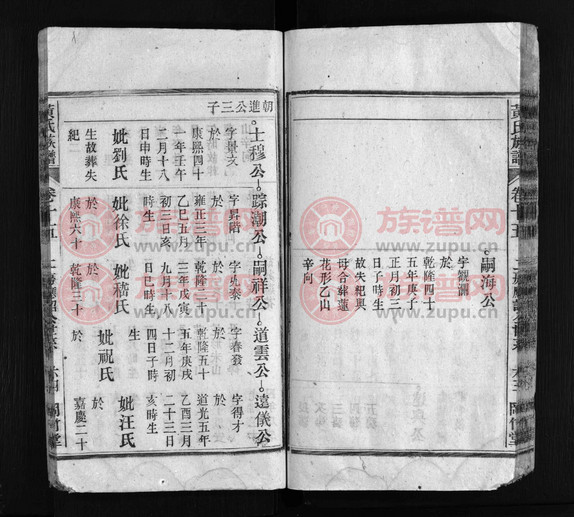 黃氏族譜
卷十五
嗣海公
字觀瀾
於
乾隆四十
五年庚子
正月初三
日子時生
故失祀與
母合葬蓮
花形乙山
辛向
朝進公三子
士穆公
踪潮公
嗣祥公
道雲公
遠儀公
字景文
於
康熙四十
一年壬午
二月十八
日申時生
妣劉氏
生故葬失
紀
字昇階
於
雍正三年
乙巳五月
初三日亥
時生
妣徐氏
於
康熙六十
字兆泰
於
乾隆二十
三年戊寅
九月十八
日巳時生
妣嵇氏
於
乾隆三十
字春發
於
乾隆五十
五年庚戌
十二月初
四日子時
生
妣祝氏
於
字得才
於
道光五年
乙酉三月
二十三日
亥時生
妣汪氏
於
嘉慶二十
黃氏族譜
卷十五
族谱网
www.zupu.cn
族谱网
www.zupu.cn
族谱网
www.zupu.cn
族谱网
www.zupu.cn